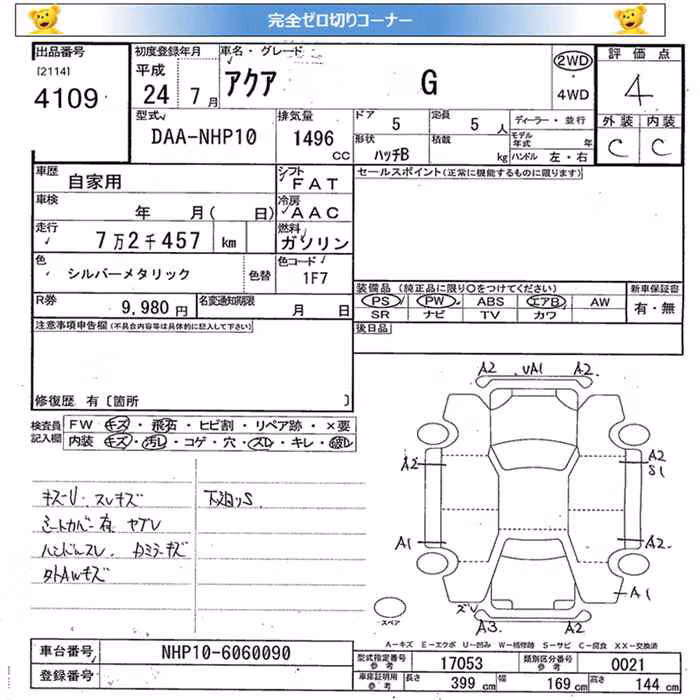 完全ゼロ切りコーナー
出品番号
[2114]
4109
初度登録年月
平成
24 7月
車名・グレード
アクア G
2WD
4WD
評価点
4
外装 内装
C C
型式
DAA-NHP10
排気量
1496
CC
ドア 5
定員 5人
形状 ハッチB
積載 kg
ディーラー・並行
モデル年式 年
ハンドル 左・右
車歴
自家用
シフト
FAT
車検
年 月( 日)
冷房
AAC
走行
7万2千457 km
燃料
ガソリン
色
シルバーメタリック
色替
色コード
1F7
R券
9,980円
名変通知期限
月 日
セールスポイント(正常に機能するものに限ります)
装備品 (純正品に限り○をつけてください)
PS PW ABS エアB AW
SR ナビ TV カワ
新車保証書
有・無
後日品
注意事項申告欄(不具合内容等は具体的に記入して下さい)
修復歴 有〔箇所 〕
検査員記入欄
FW キズ・飛石・ヒビ割・リペア跡・×要
内装 キズ・汚レ・コゲ・穴・スレ・キレ・破レ
キズU スレキズ
シートカバー有 ヤブレ
ハンドルスレ
タトAWキズ
下廻りS
A2 UA1 A2
A2
A2
S1
A1
A2
A1
ズレ
A3 A2
スペア
A-キズ E-エクボ U-凹み W-補修跡 S-サビ C-腐食 XX-交換済
車台番号
NHP10-6060090
登録番号
型式指定番号
参考
17053
類別区分番号
参考
0021
車庫証明用
参考
長さ 399 cm 幅 169 cm 高さ 144 cm